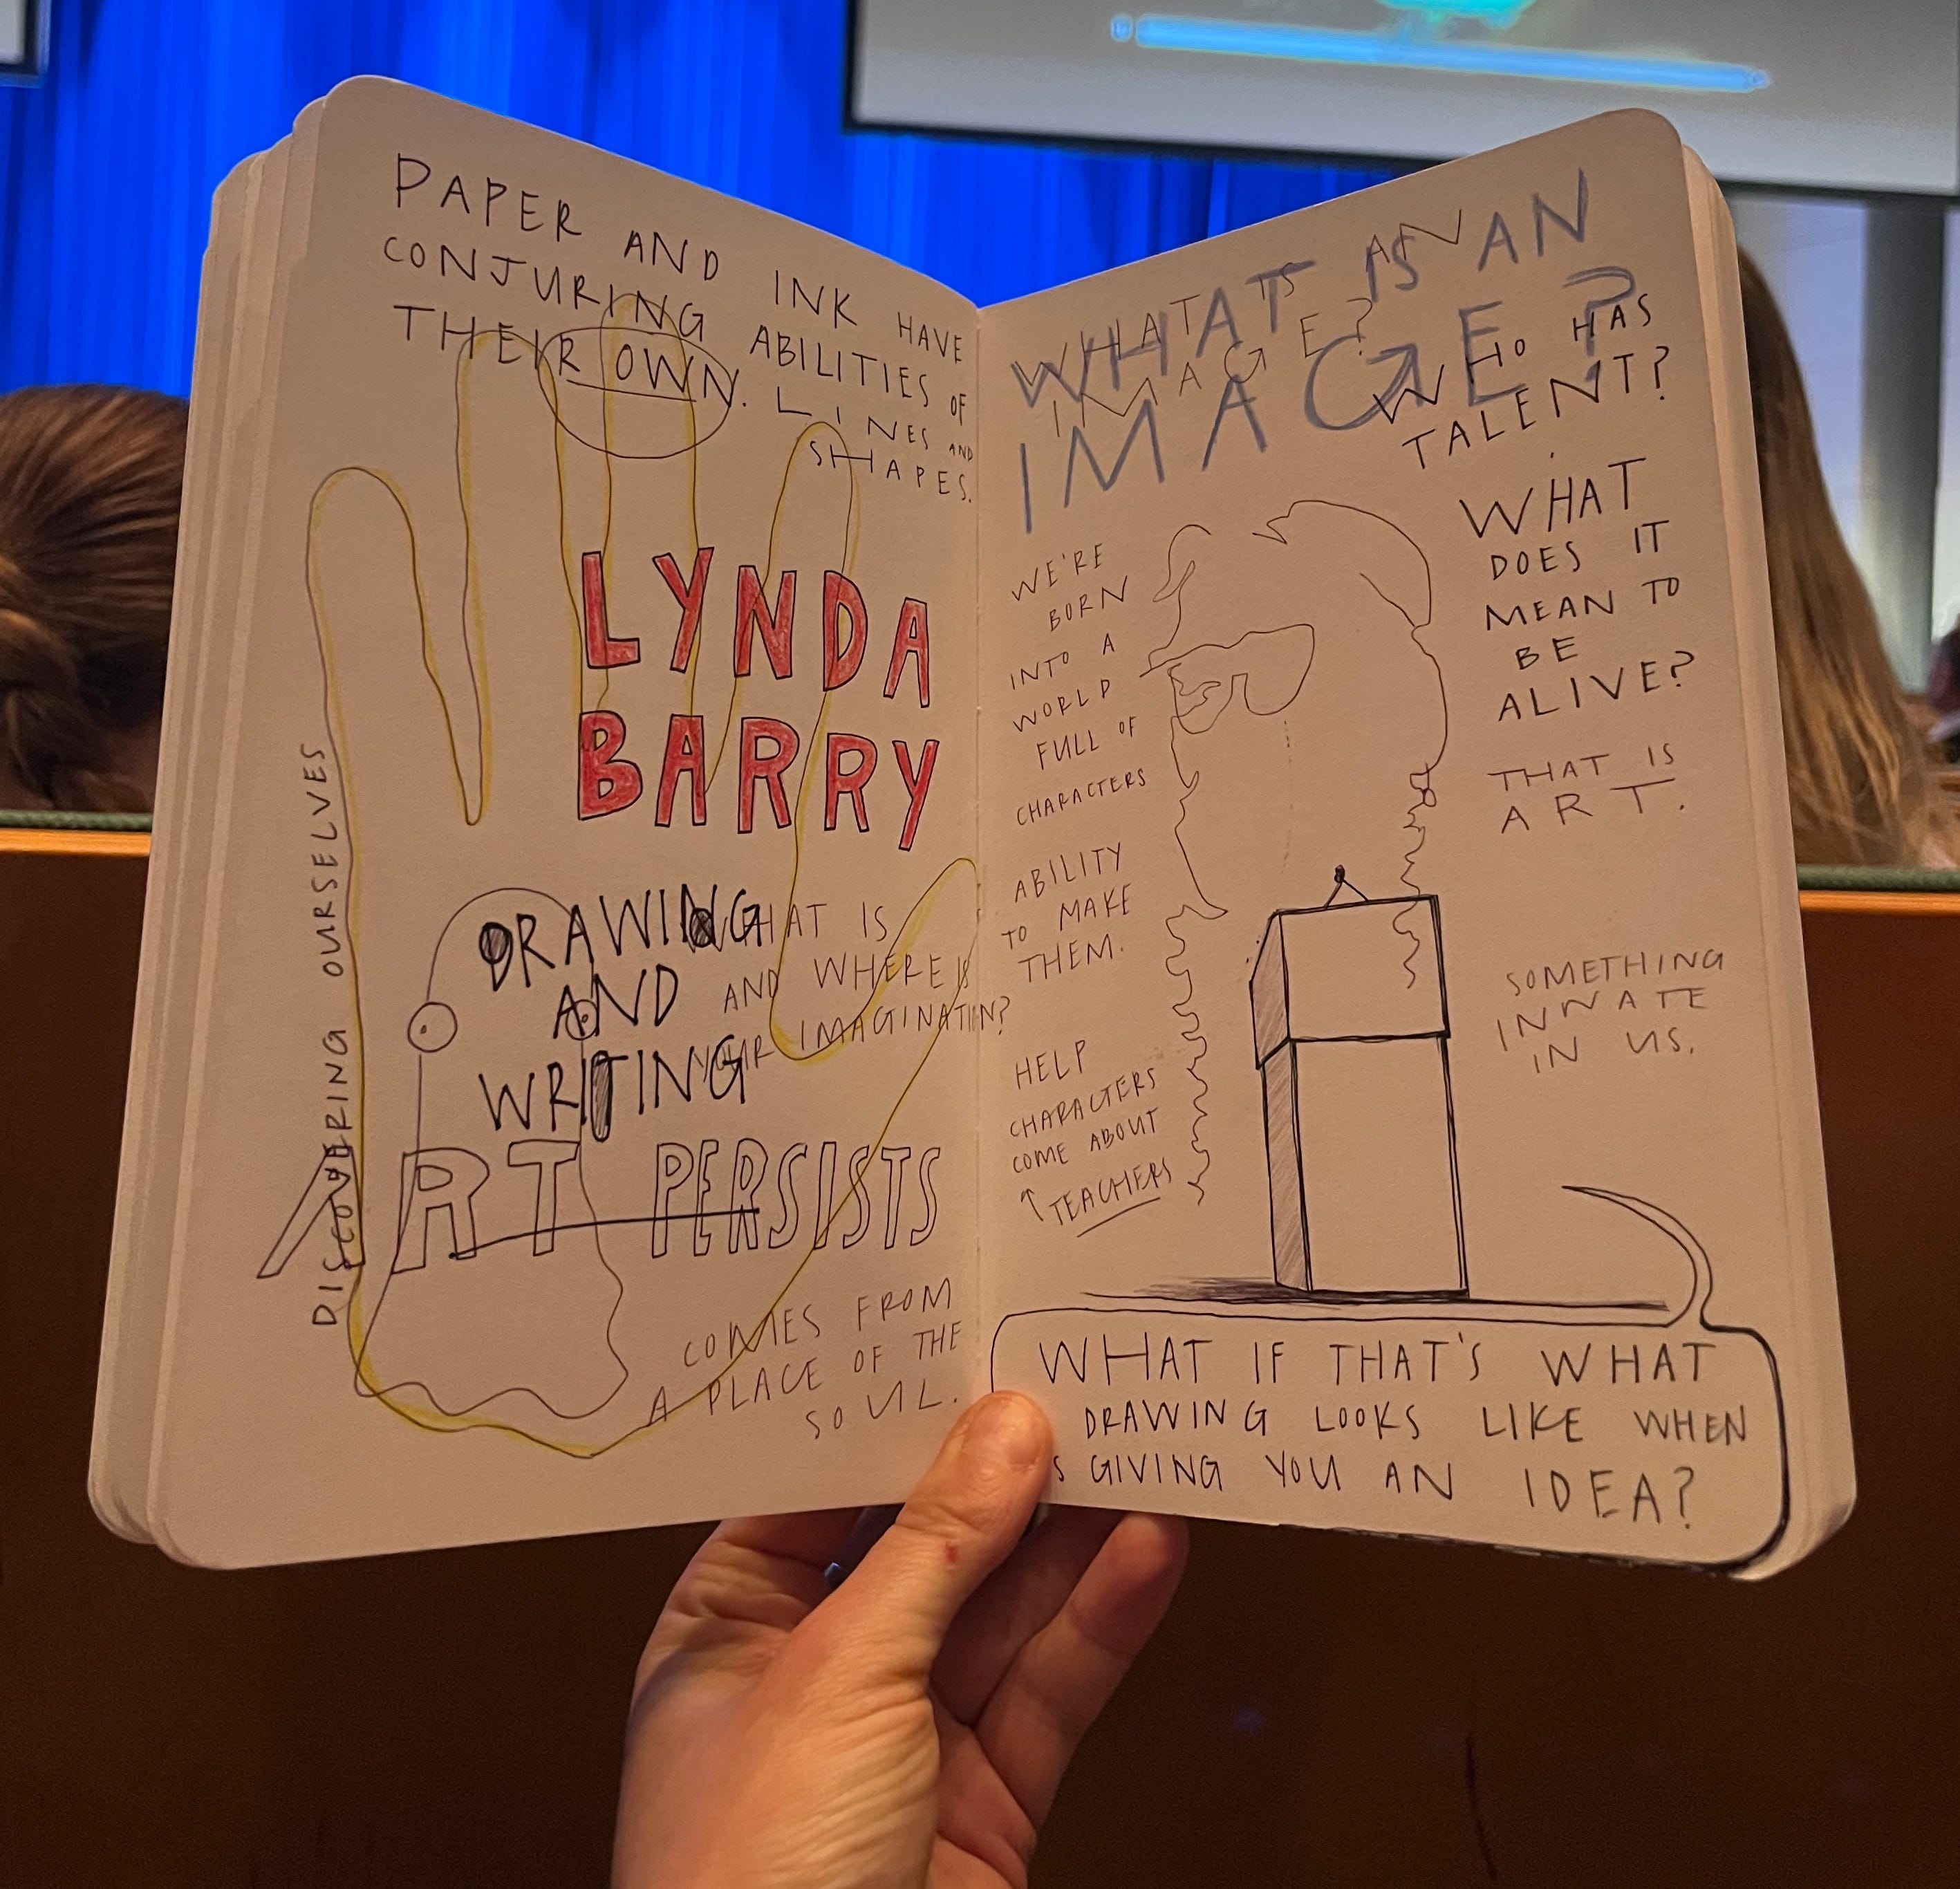 PAPER AND INK HAVE
CONJURING ABILITIES OF
THEIR OWN. LINES AND
SHAPES.
LYNDA
BARRY
DISCOVERING OURSELVES
DRAWING
AND
WRITING
WHAT IS
AND WHERE IS
YOUR IMAGINATION?
ART PERSISTS
COMES FROM
A PLACE OF THE
SOUL.
WHAT IS AN
IMAGE?
WHAT IS AN
IMAGE?
WHO HAS
TALENT?
WHAT
DOES IT
MEAN TO
BE
ALIVE?
THAT IS
ART.
WE'RE
BORN
INTO A
WORLD
FULL OF
CHARACTERS
ABILITY
TO MAKE
THEM.
HELP
CHARACTERS
COME ABOUT
TEACHERS
SOMETHING
INNATE
IN US.
WHAT IF THAT'S WHAT
DRAWING LOOKS LIKE WHEN
GIVING YOU AN IDEA?